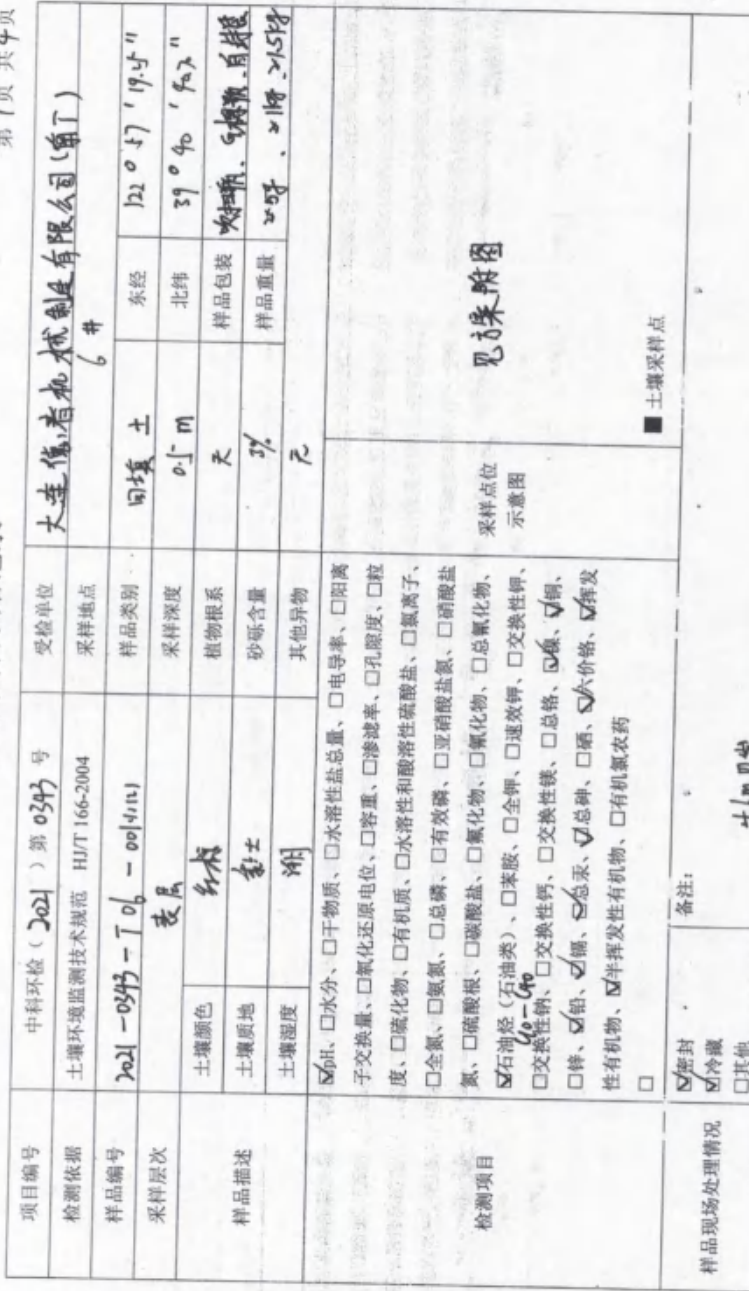 第1页 共4页
项目编号 中科环检（2021）第0343号 受检单位 大连 有机械制造有限公司
检测依据 土壤环境监测技术规范 HJ/T 166-2004 采样地点 6#
样品编号 2021-0343-T06-001 样品类别 回填土 东经 122°57′19.5″
采样层次 表层 采样深度 0.5m 北纬 39°40′
样品描述 土壤颜色 植物根系 无 样品包装 吹扫瓶、棕瓶、自封袋
土壤质地 砂砾含量 3% 样品重量
土壤湿度 潮 其他异物 无
检测项目
☑pH、□水分、□干物质、□水溶性盐总量、□电导率、□阳离
子交换量、□氧化还原电位、□容重、□渗滤率、□孔隙度、□粒
度、□硫化物、□有机质、□水溶性和酸溶性硫酸盐、□氯离子、
□全氮、□氨氮、□总磷、□有效磷、□亚硝酸盐氮、□硝酸盐
氮、□硫酸根、□碳酸盐、□氟化物、□氰化物、□总氰化物、
☑石油烃（石油类）、□苯胺、□全钾、□速效钾、□交换性钾、
□交换性钠、□交换性钙、□交换性镁、□总铬、☑镍、☑铜、
□锌、☑铅、☑镉、☑总汞、☑总砷、□硒、☑六价铬、☑挥发
性有机物、☑半挥发性有机物、□有机氯农药
□
采样点位
示意图
见方案附图
■ 土壤采样点
样品现场处理情况
☑密封
☑冷藏
□其他
备注：